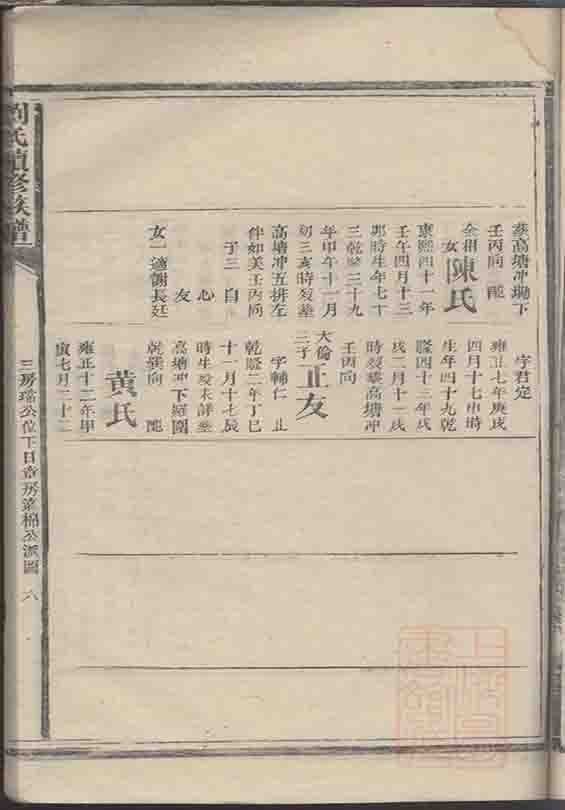 葬高塘冲坳下
壬丙向 配
金相女陳氏
康熙四十一年
壬午四月十三
卯時生年七十
三乾隆三十九
年甲午十一月
初三亥時歿葬
高塘冲五拼左
伴如美壬丙向
子三 自
心
友
女一適謝長廷
字君定
雍正七年庚戌
四月十七申時
生年四十九乾
隆四十三年戌
戌二月十一戌
時歿葬高塘冲
壬丙向
大倫三子正友
字輔仁 止
乾隆二年丁巳
十一月十七辰
時生歿未詳葬
高塘冲下羅圍
乾巽向 配
黃氏
雍正十二年甲
寅七月二十二
劉氏續修族譜
三房瑞公位下日章房 棉公派圖 八
上海圖書館藏